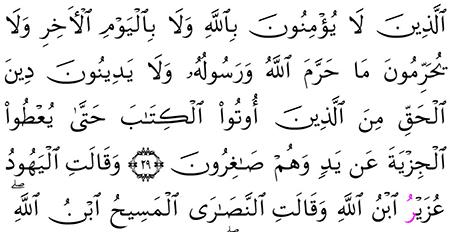 ٱلَّذِينَ لَا يُؤْمِنُونَ بِٱللَّهِ وَلَا بِٱلْيَوْمِ ٱلْأَخِرِ وَلَا
يُحَرِّمُونَ مَا حَرَّمَ ٱللَّهُ وَرَسُولُهُۥ وَلَا يَدِينُونَ دِينَ
ٱلْحَقِّ مِنَ ٱلَّذِينَ أُوتُوا۟ ٱلْكِتَٰبَ حَتَّىٰ يُعْطُوا۟
ٱلْجِزْيَةَ عَن يَدٍ وَهُمْ صَٰغِرُونَ ﴿٢٩﴾ وَقَالَتِ ٱلْيَهُودُ
عُزَيْرُ ٱبْنُ ٱللَّهِ وَقَالَتِ ٱلنَّصَٰرَى ٱلْمَسِيحُ ٱبْنُ ٱللَّهِ ۖ